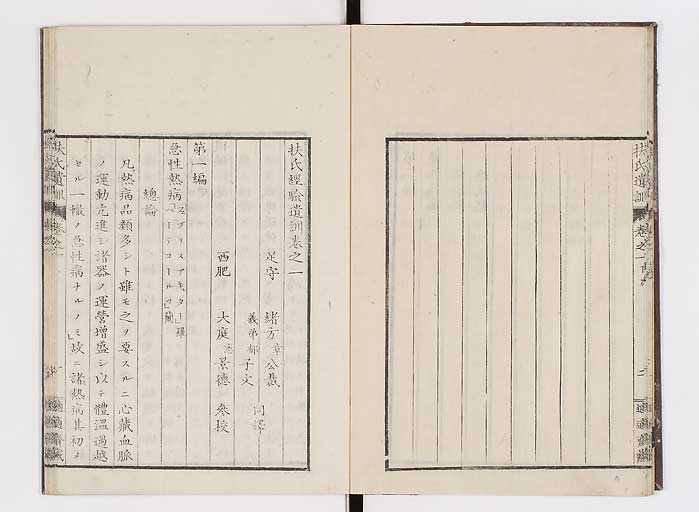 扶氏遺訓
扶氏經驗遺訓卷之一
足守 緒方章公裁
義弟郁子文 同譯
西肥 大庭忞景德 參校
第一編
急性熱病「ヘブリスアキュタ」羅「ヘーテコールツ」蘭
總論
凡熱病品類多シト雖モ之ヲ要スルニ心藏血脈
ノ運動亢進シ諸器ノ運營增盛シ以テ體溫過越
セル一轍ノ急性病ナルノミ」故ニ諸熱病其初メ
扶氏遺訓 卷之一